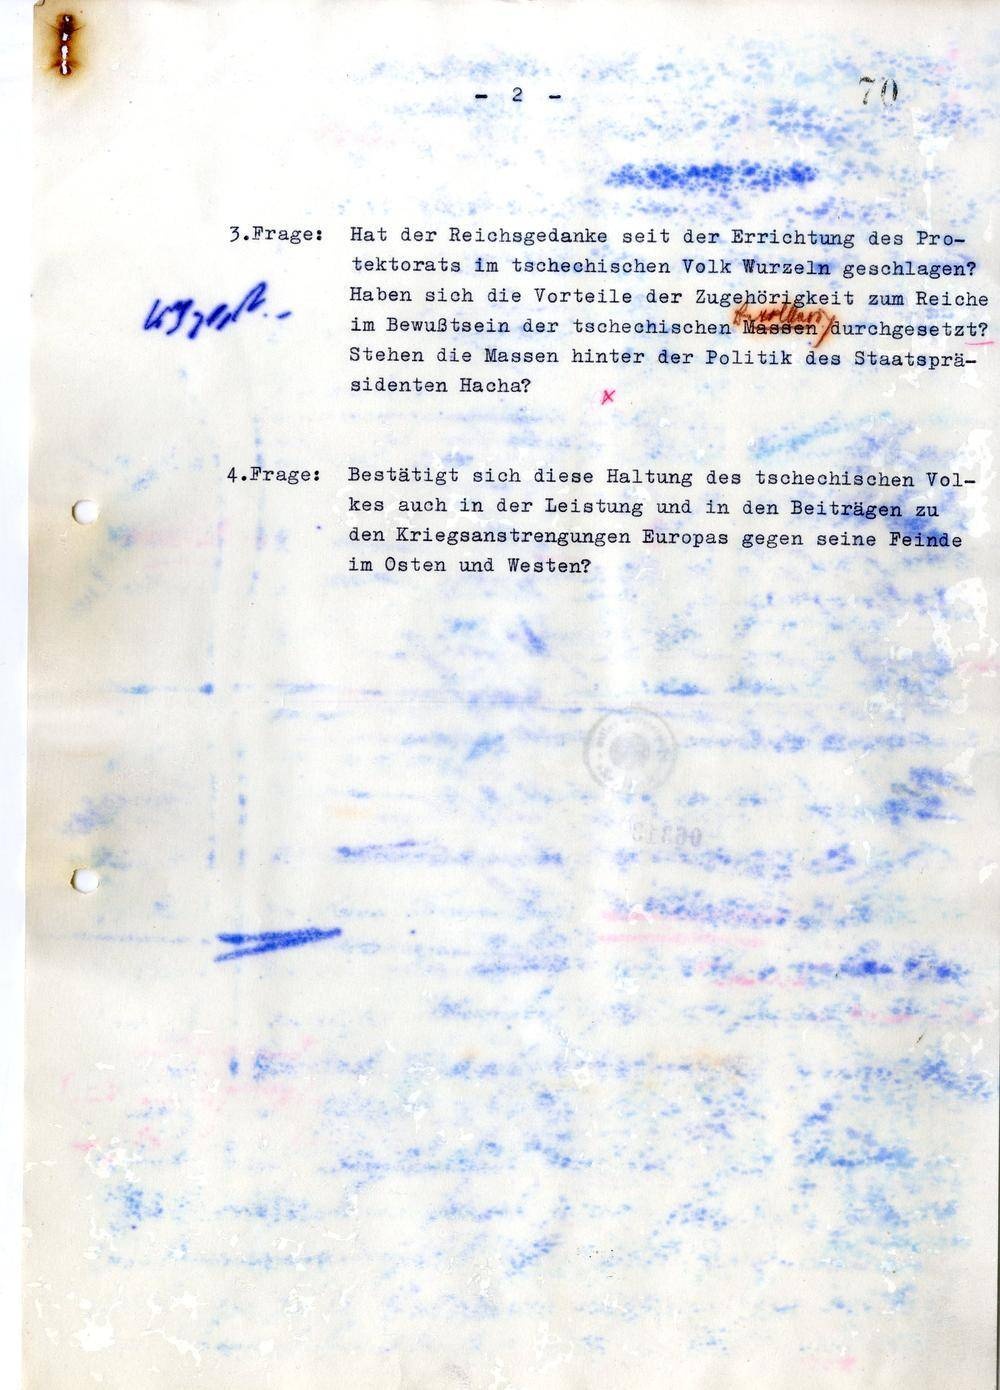 - 2 -
70
3.Frage: Hat der Reichsgedanke seit der Errichtung des Pro-
tektorats im tschechischen Volk Wurzeln geschlagen?
Haben sich die Vorteile der Zugehörigkeit zum Reiche
im Bewußtsein der tschechischen Massen durchgesetzt?
Stehen die Massen hinter der Politik des Staatsprä-
sidenten Hacha?
4.Frage: Bestätigt sich diese Haltung des tschechischen Vol-
kes auch in der Leistung und in den Beiträgen zu
den Kriegsanstrengungen Europas gegen seine Feinde
im Osten und Westen?